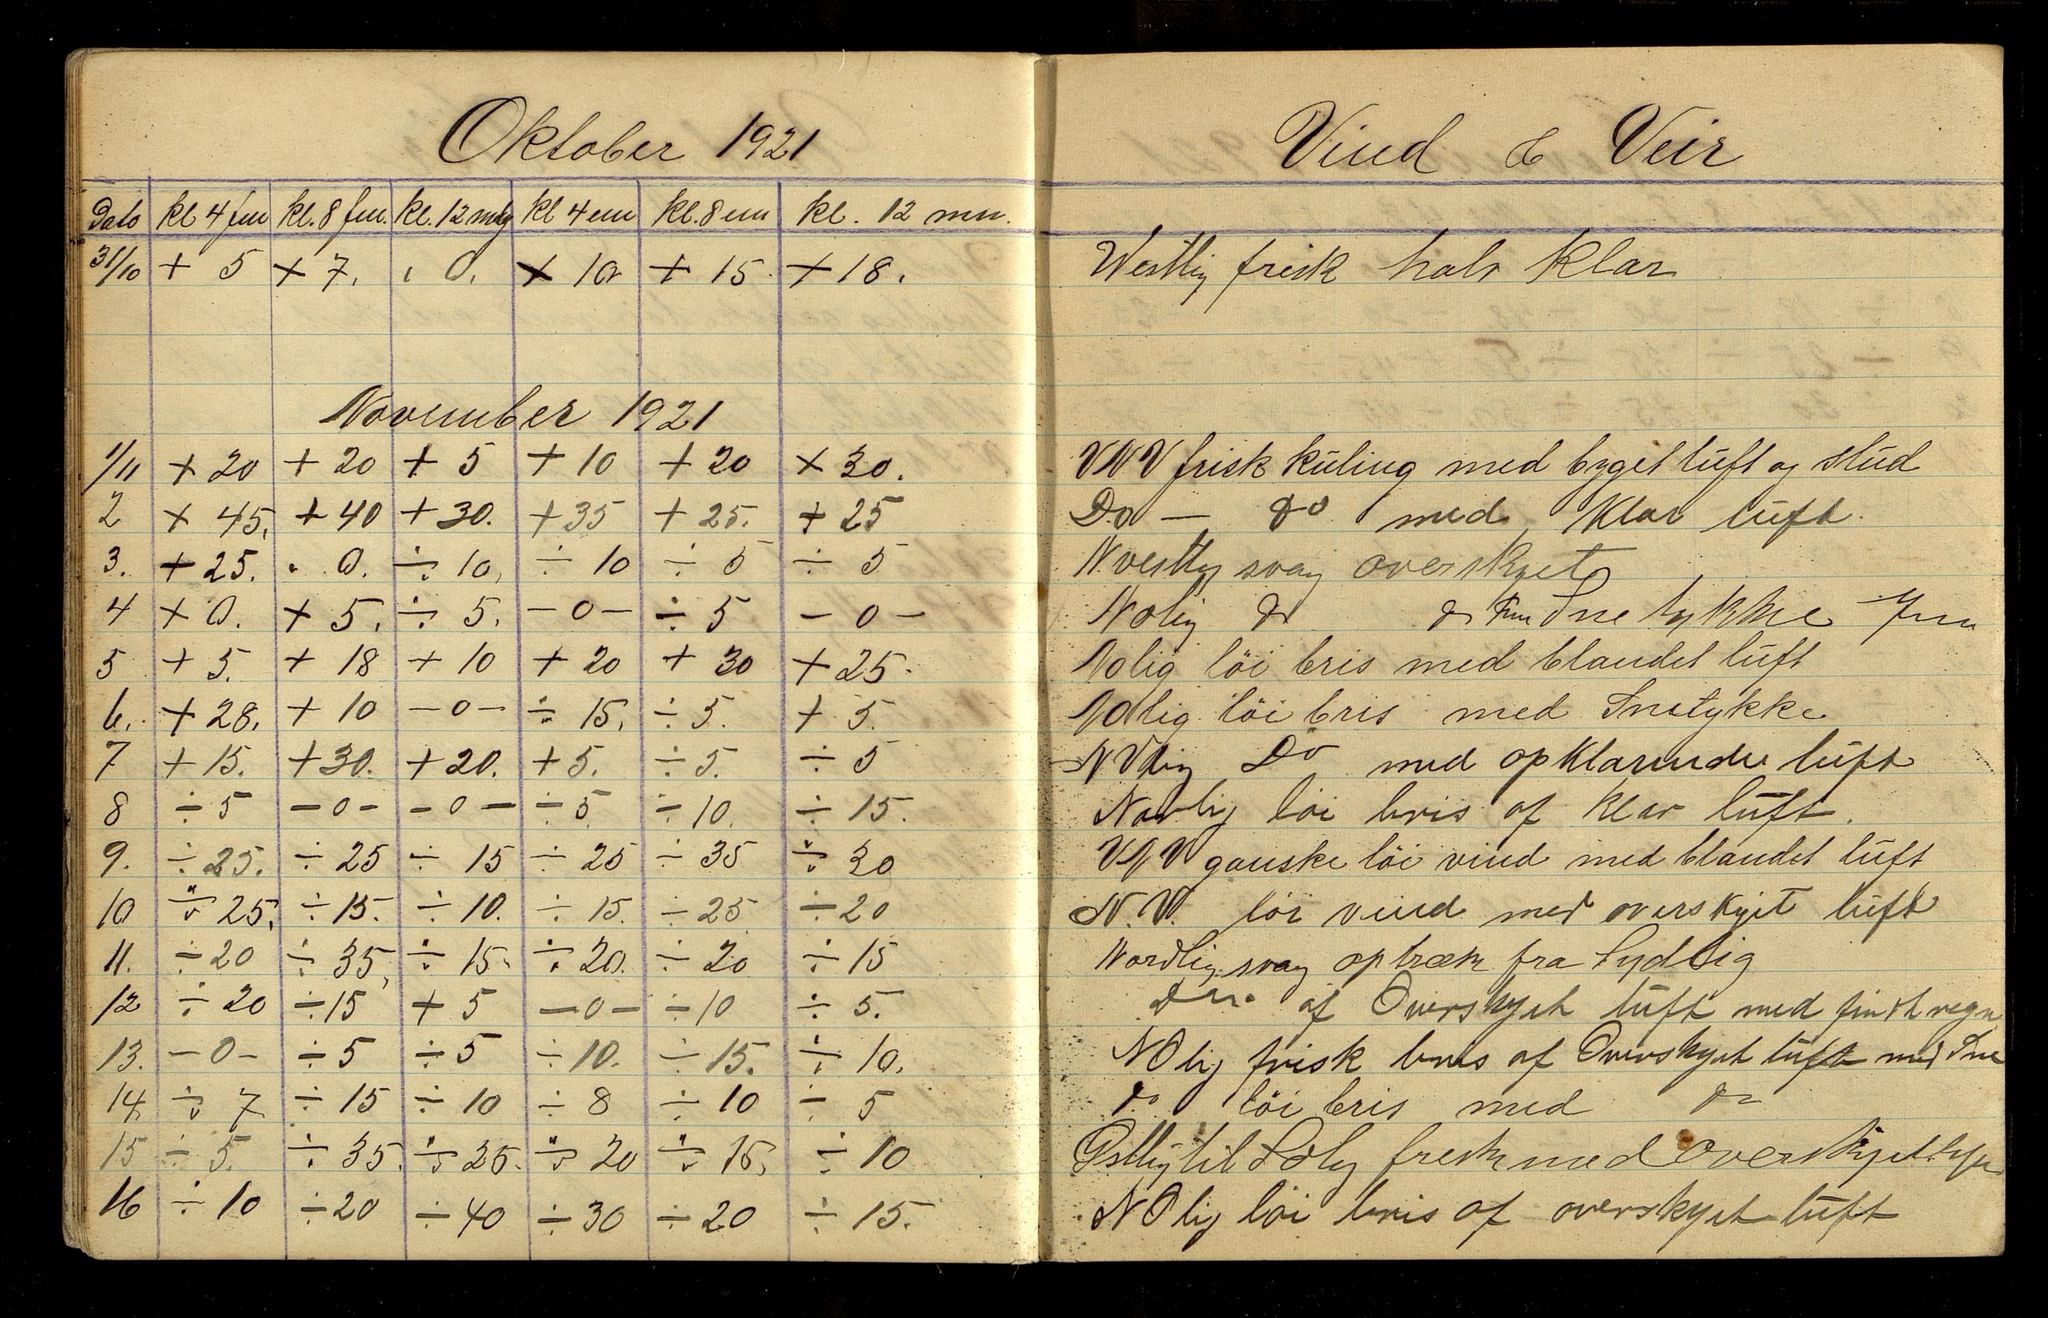 Oktober 1921
Dato kl 4 fm kl. 8 fm kl. 12 mdg kl 4 em kl. 8 em kl. 12 mn.
31/10 + 5 + 7. 0. + 10 + 15 + 18.
November 1921
1/11 + 20 + 20 + 5 + 10 + 20 + 30.
2 + 45. + 40 + 30. + 35 + 25. + 25
3. + 25. 0. ÷ 10, ÷ 10 ÷ 5 ÷ 5
4 + 0. + 5. ÷ 5. - 0 - ÷ 5 - 0 -
5 + 5. + 18 + 10 + 20 + 30 + 25.
6. + 28. + 10 - 0 - ÷ 15. ÷ 5. + 5.
7 + 15. + 30. + 20. + 5. ÷ 5. ÷ 5
8 ÷ 5 - 0 - - 0 - ÷ 5 ÷ 10. ÷ 15.
9. ÷ 25. ÷ 25 ÷ 15 ÷ 25 ÷ 35 ÷ 30
10 ÷ 25. ÷ 15. ÷ 10. ÷ 15. ÷ 25 ÷ 20
11. ÷ 20 ÷ 35, ÷ 15. ÷ 20. ÷ 20 ÷ 15
12 ÷ 20 ÷ 15 + 5 - 0 - ÷ 10 ÷ 5.
13. - 0 - ÷ 5 ÷ 5 ÷ 10. ÷ 15. ÷ 10.
14. ÷ 7 ÷ 15 ÷ 10 ÷ 8 ÷ 10 ÷ 5
15 ÷ 5. ÷ 35. ÷ 25. ÷ 20 ÷ 15. ÷ 10
16 ÷ 10 ÷ 20 ÷ 40 ÷ 30 ÷ 20 ÷ 15.
Vind & Veir
Westlig frisk halv klar
VNV frisk kuling med byget luft og slud
Do — do med Klar luft.
N.vestlig svag overskyet
Nolig do do Snetykke
Nolig löi bris med blandet luft
Nolig löi bris med Snetykke
NVlig Do med opklarende luft
Nordlig löi bris af klar luft.
VNV ganske löi vind med blandet luft
N.V. löi vind med overskyet luft
Nordlig svag optræk fra Sydlig
do af Overskyet luft med fint regn
NOlig frisk bris af Overskyet luft med Sne
do löi bris med do
Östlig til SOlig frisk med Overskyet
NOlig löi bris af overskyet luft